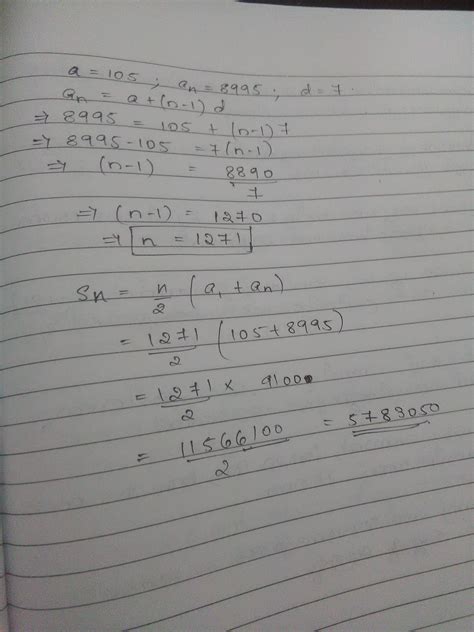 a = 105 ; an = 8995 ; d = 7.
an = a + (n-1) d
⇒ 8995 = 105 + (n-1) 7
⇒ 8995 - 105 = 7 (n-1)
⇒ (n-1) = 8890/7
⇒ (n-1) = 1270
⇒ n = 1271
Sn = n/2 (a1 + an)
= 1271/2 (105 + 8995)
= 1271/2 × 9100
= 11566100/2 = 5783050